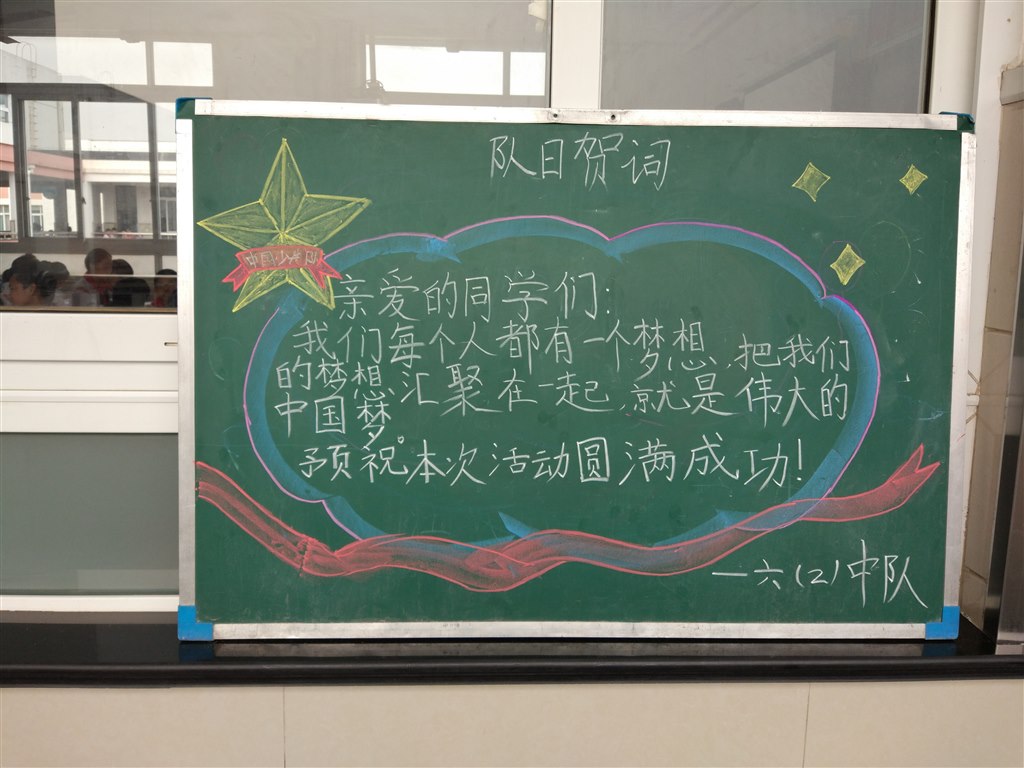 队日贺词
中国少先队
亲爱的同学们:
我们每个人都有一个梦想,把我们
的梦想汇聚在一起,就是伟大的
中国梦。
预祝本次活动圆满成功!
—六(2)中队